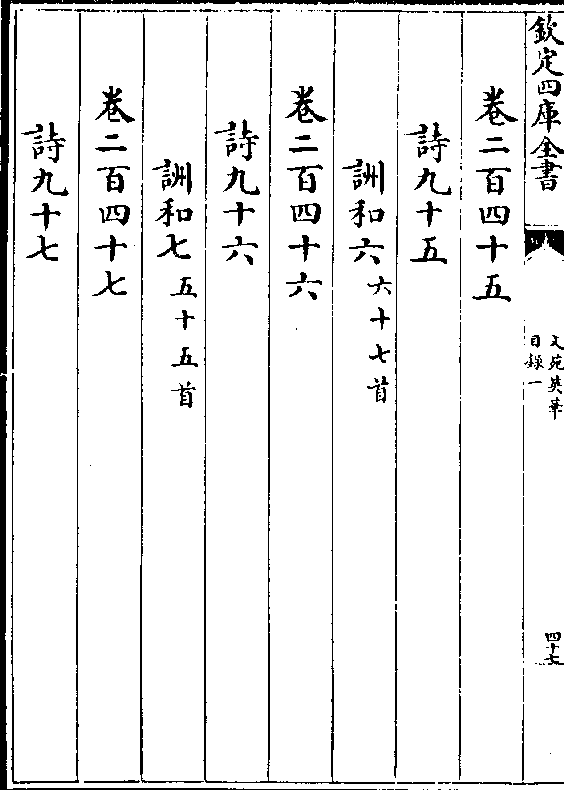 欽定四庫全書
文苑英華
目録一
四十七
卷二百四十五
詩九十五
詶和六六十七首
卷二百四十六
詩九十六
詶和七五十五首
卷二百四十七
詩九十七